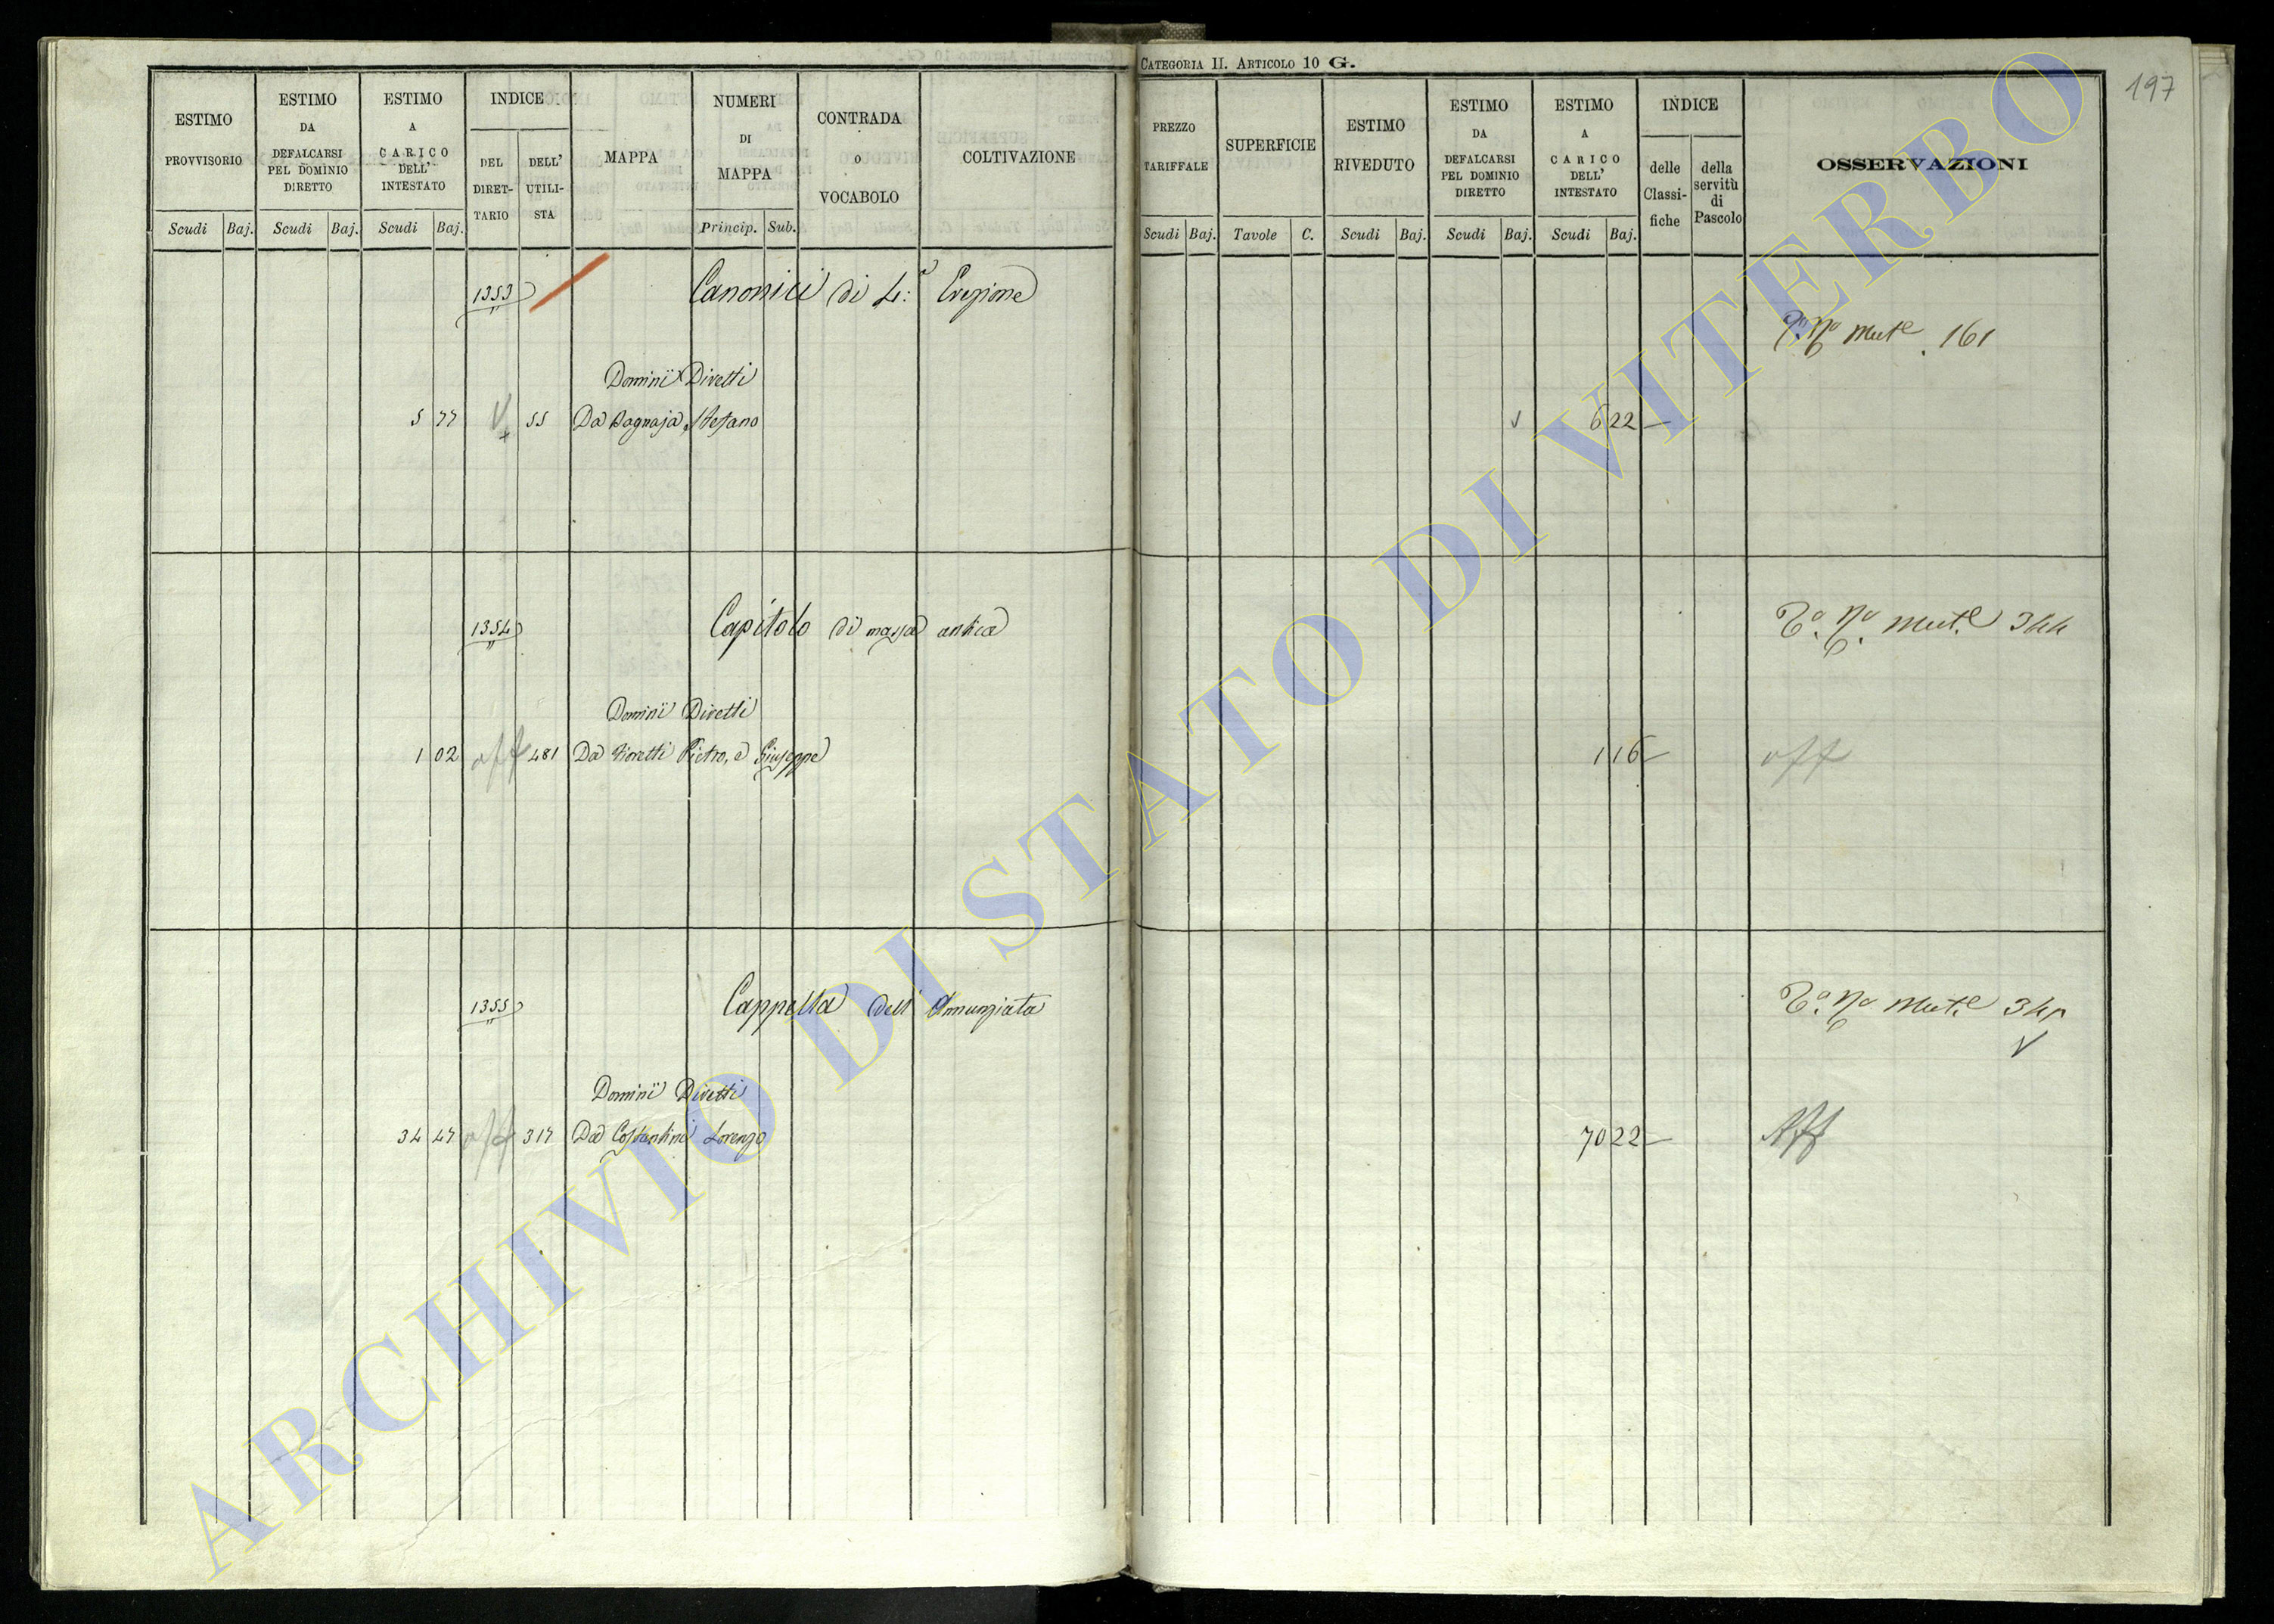 CATEGORIA II. ARTICOLO 10 G.
197
ESTIMO PROVVISORIO Scudi Baj.
ESTIMO DA DEFALCARSI PEL DOMINIO DIRETTO Scudi Baj.
ESTIMO A CARICO DELL' INTESTATO Scudi Baj.
INDICE DEL DIRET-TARIO DELL' UTILI-STA
MAPPA
NUMERI DI MAPPA Princip. Sub.
CONTRADA O VOCABOLO
COLTIVAZIONE
PREZZO TARIFFALE Scudi Baj.
SUPERFICIE Tavole C.
ESTIMO RIVEDUTO Scudi Baj.
ESTIMO DA DEFALCARSI PEL DOMINIO DIRETTO Scudi Baj.
ESTIMO A CARICO DELL' INTESTATO Scudi Baj.
INDICE delle Classi-fiche della servitù di Pascolo
OSSERVAZIONI
1353 Canonici di Erezione
161
Dominii Diretti
5 77 55 Da Bagnaja Stefano 6 22
1354 Capitolo di massa antica
344
Dominii Diretti
1 02 off 481 Da Fioretti Pietro, e Giuseppe 1 16 off
1355 Cappella dell' Annunziata
Dominii Diretti
34 47 off 317 Da Costantini Lorenzo 70 22 Aff
ARCHIVIO DI STATO DI VITERBO